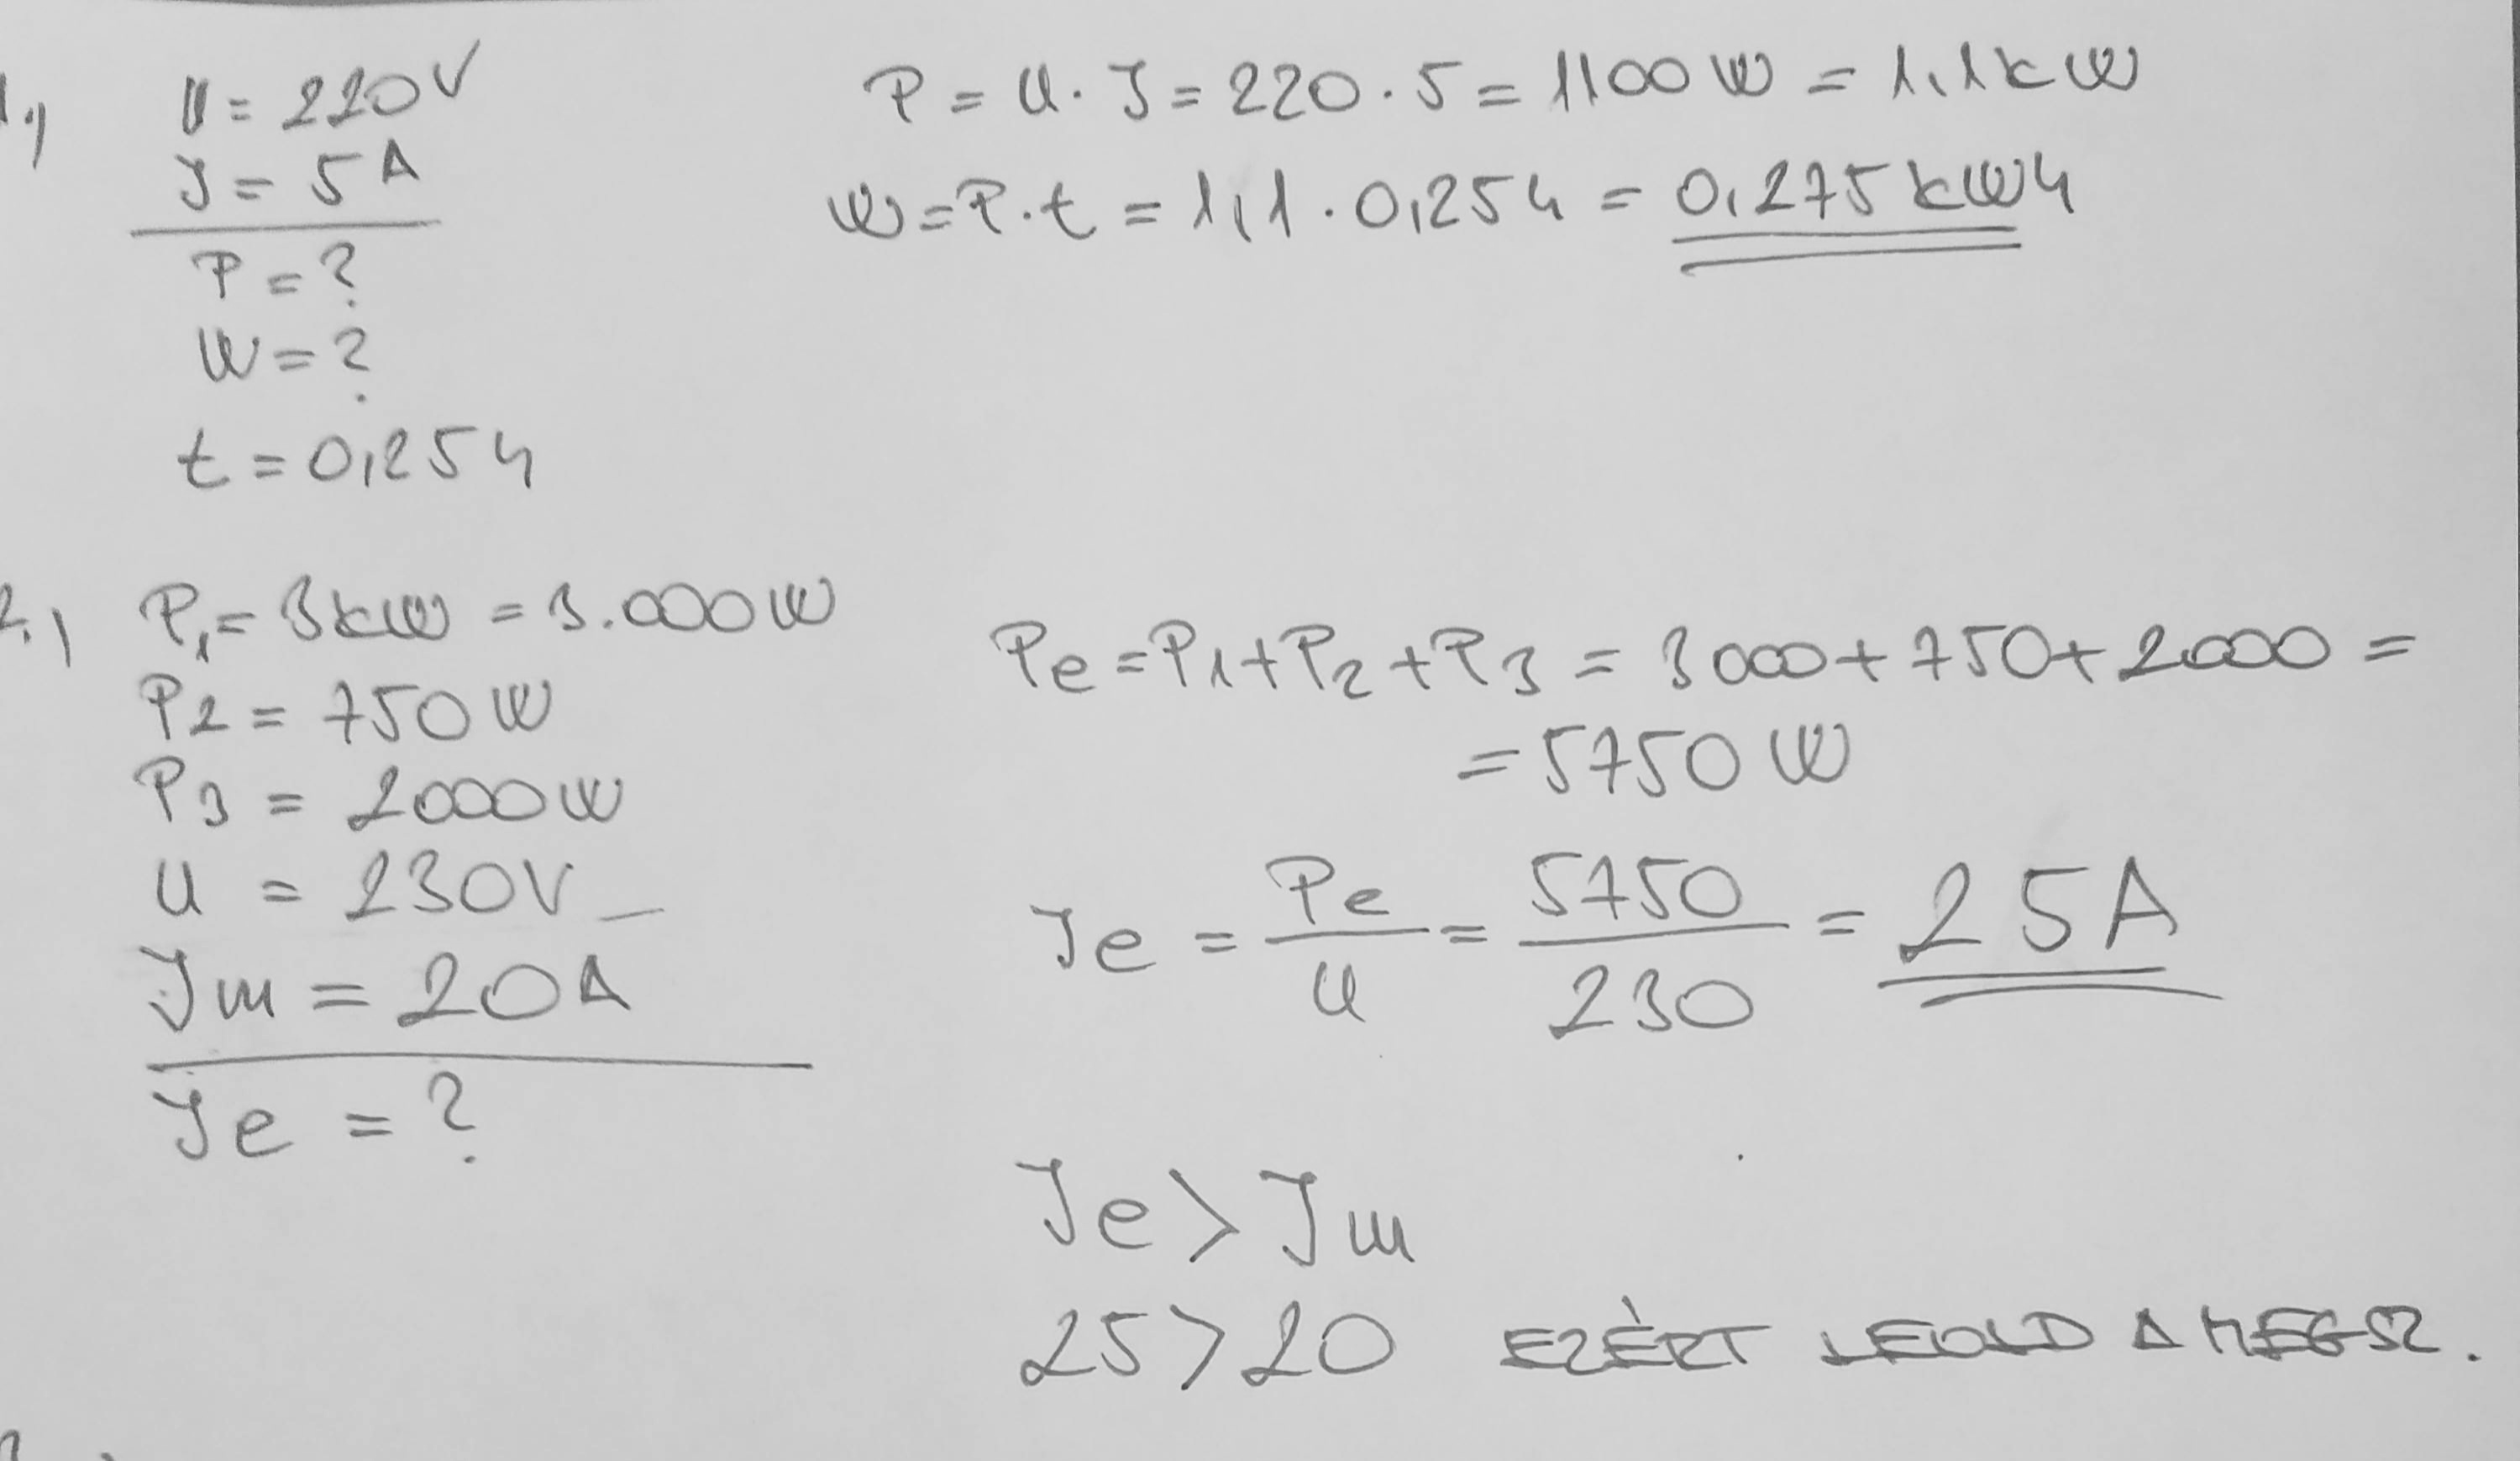 1.,
U = 220V
I = 5A
P = ?
W = ?
t = 0,25h
P = U · I = 220 · 5 = 1100 W = 1,1 kW
W = P · t = 1,1 · 0,25h = 0,275 kWh
2.,
P1 = 3kW = 3.000W
P2 = 750W
P3 = 2000W
U = 230V
Im = 20A
Ie = ?
Pe = P1 + P2 + P3 = 3000 + 750 + 2000 =
= 5750 W
Ie = Pe/U = 5750/230 = 25A
Ie > Im
25 > 20 EZÉRT LEOLD A MEGSZ.